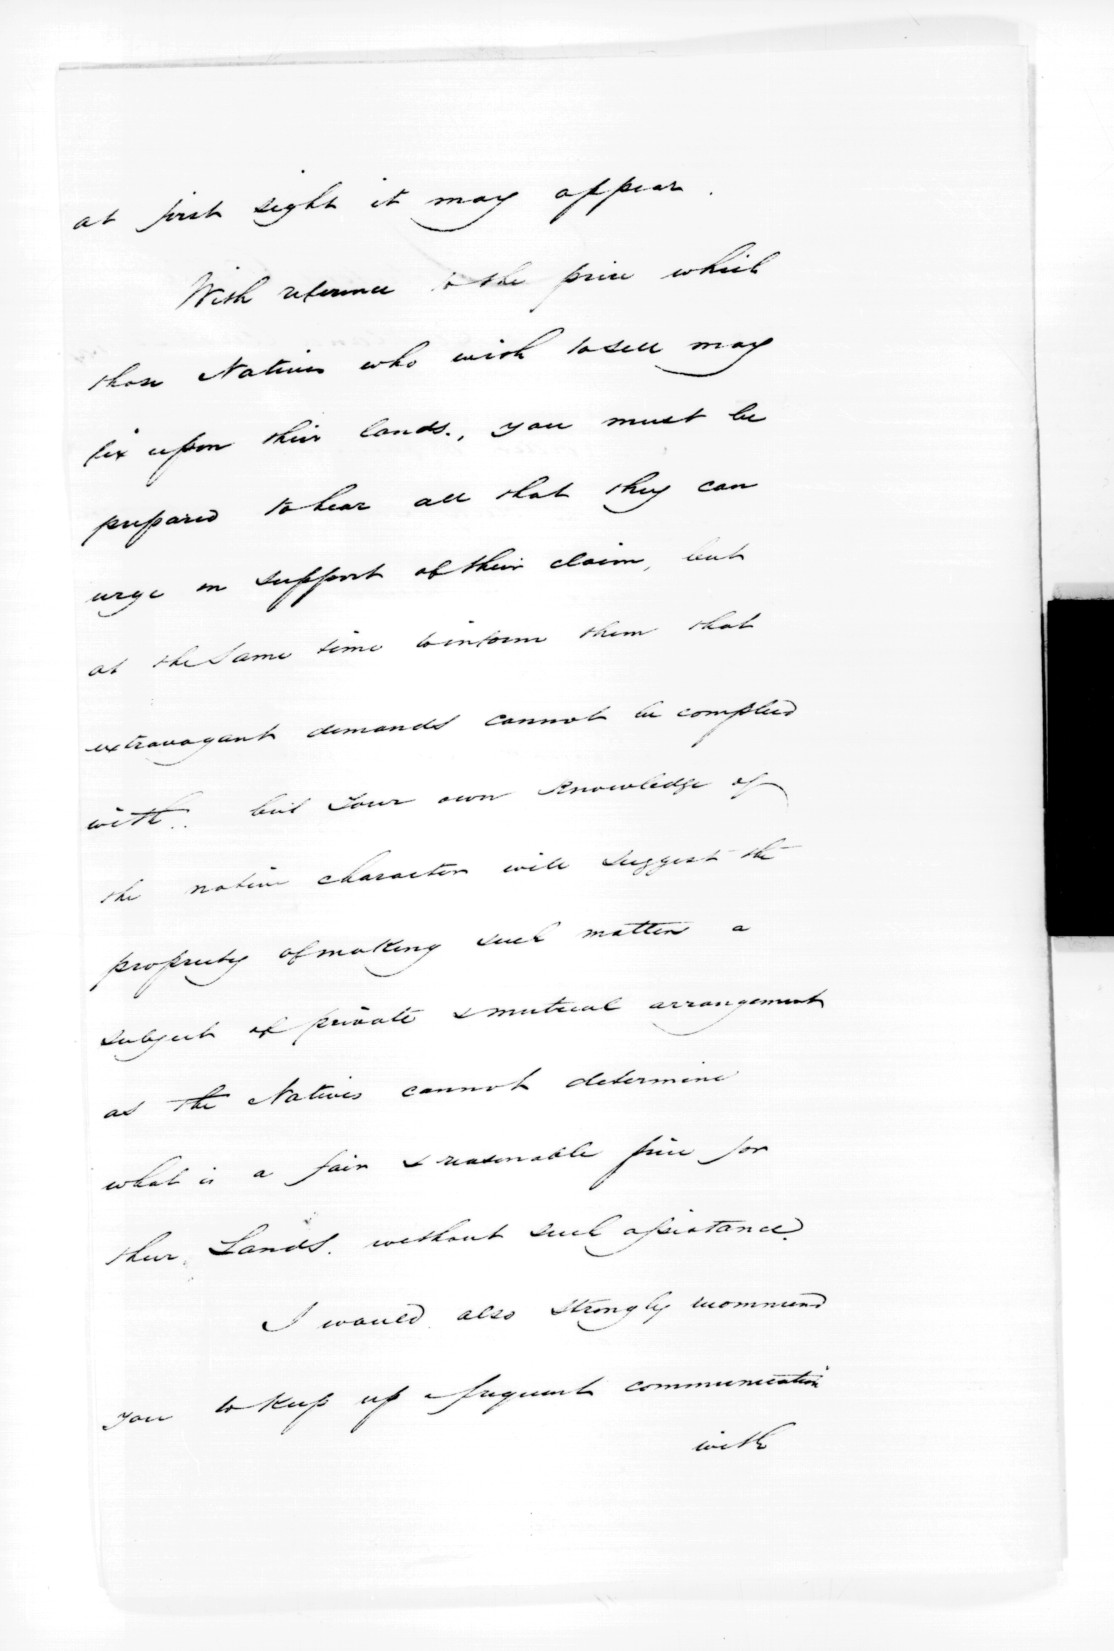 at first sight it may appear.
With reference to the price which
those Natives who wish to sell may
fix upon their lands., you must be
prepared to hear all that they can
urge in support of their claim, but
at the same time to inform them that
extravagant demands cannot be complied
with.. but your own knowledge of
the native character will suggest the
propriety of making such matters a
subject of private & mutual arrangement
as the Natives cannot determine
what is a fair & reasonable price for
their Lands. without such assistance.
I would also strongly recommend
you to keep up frequent communication
with